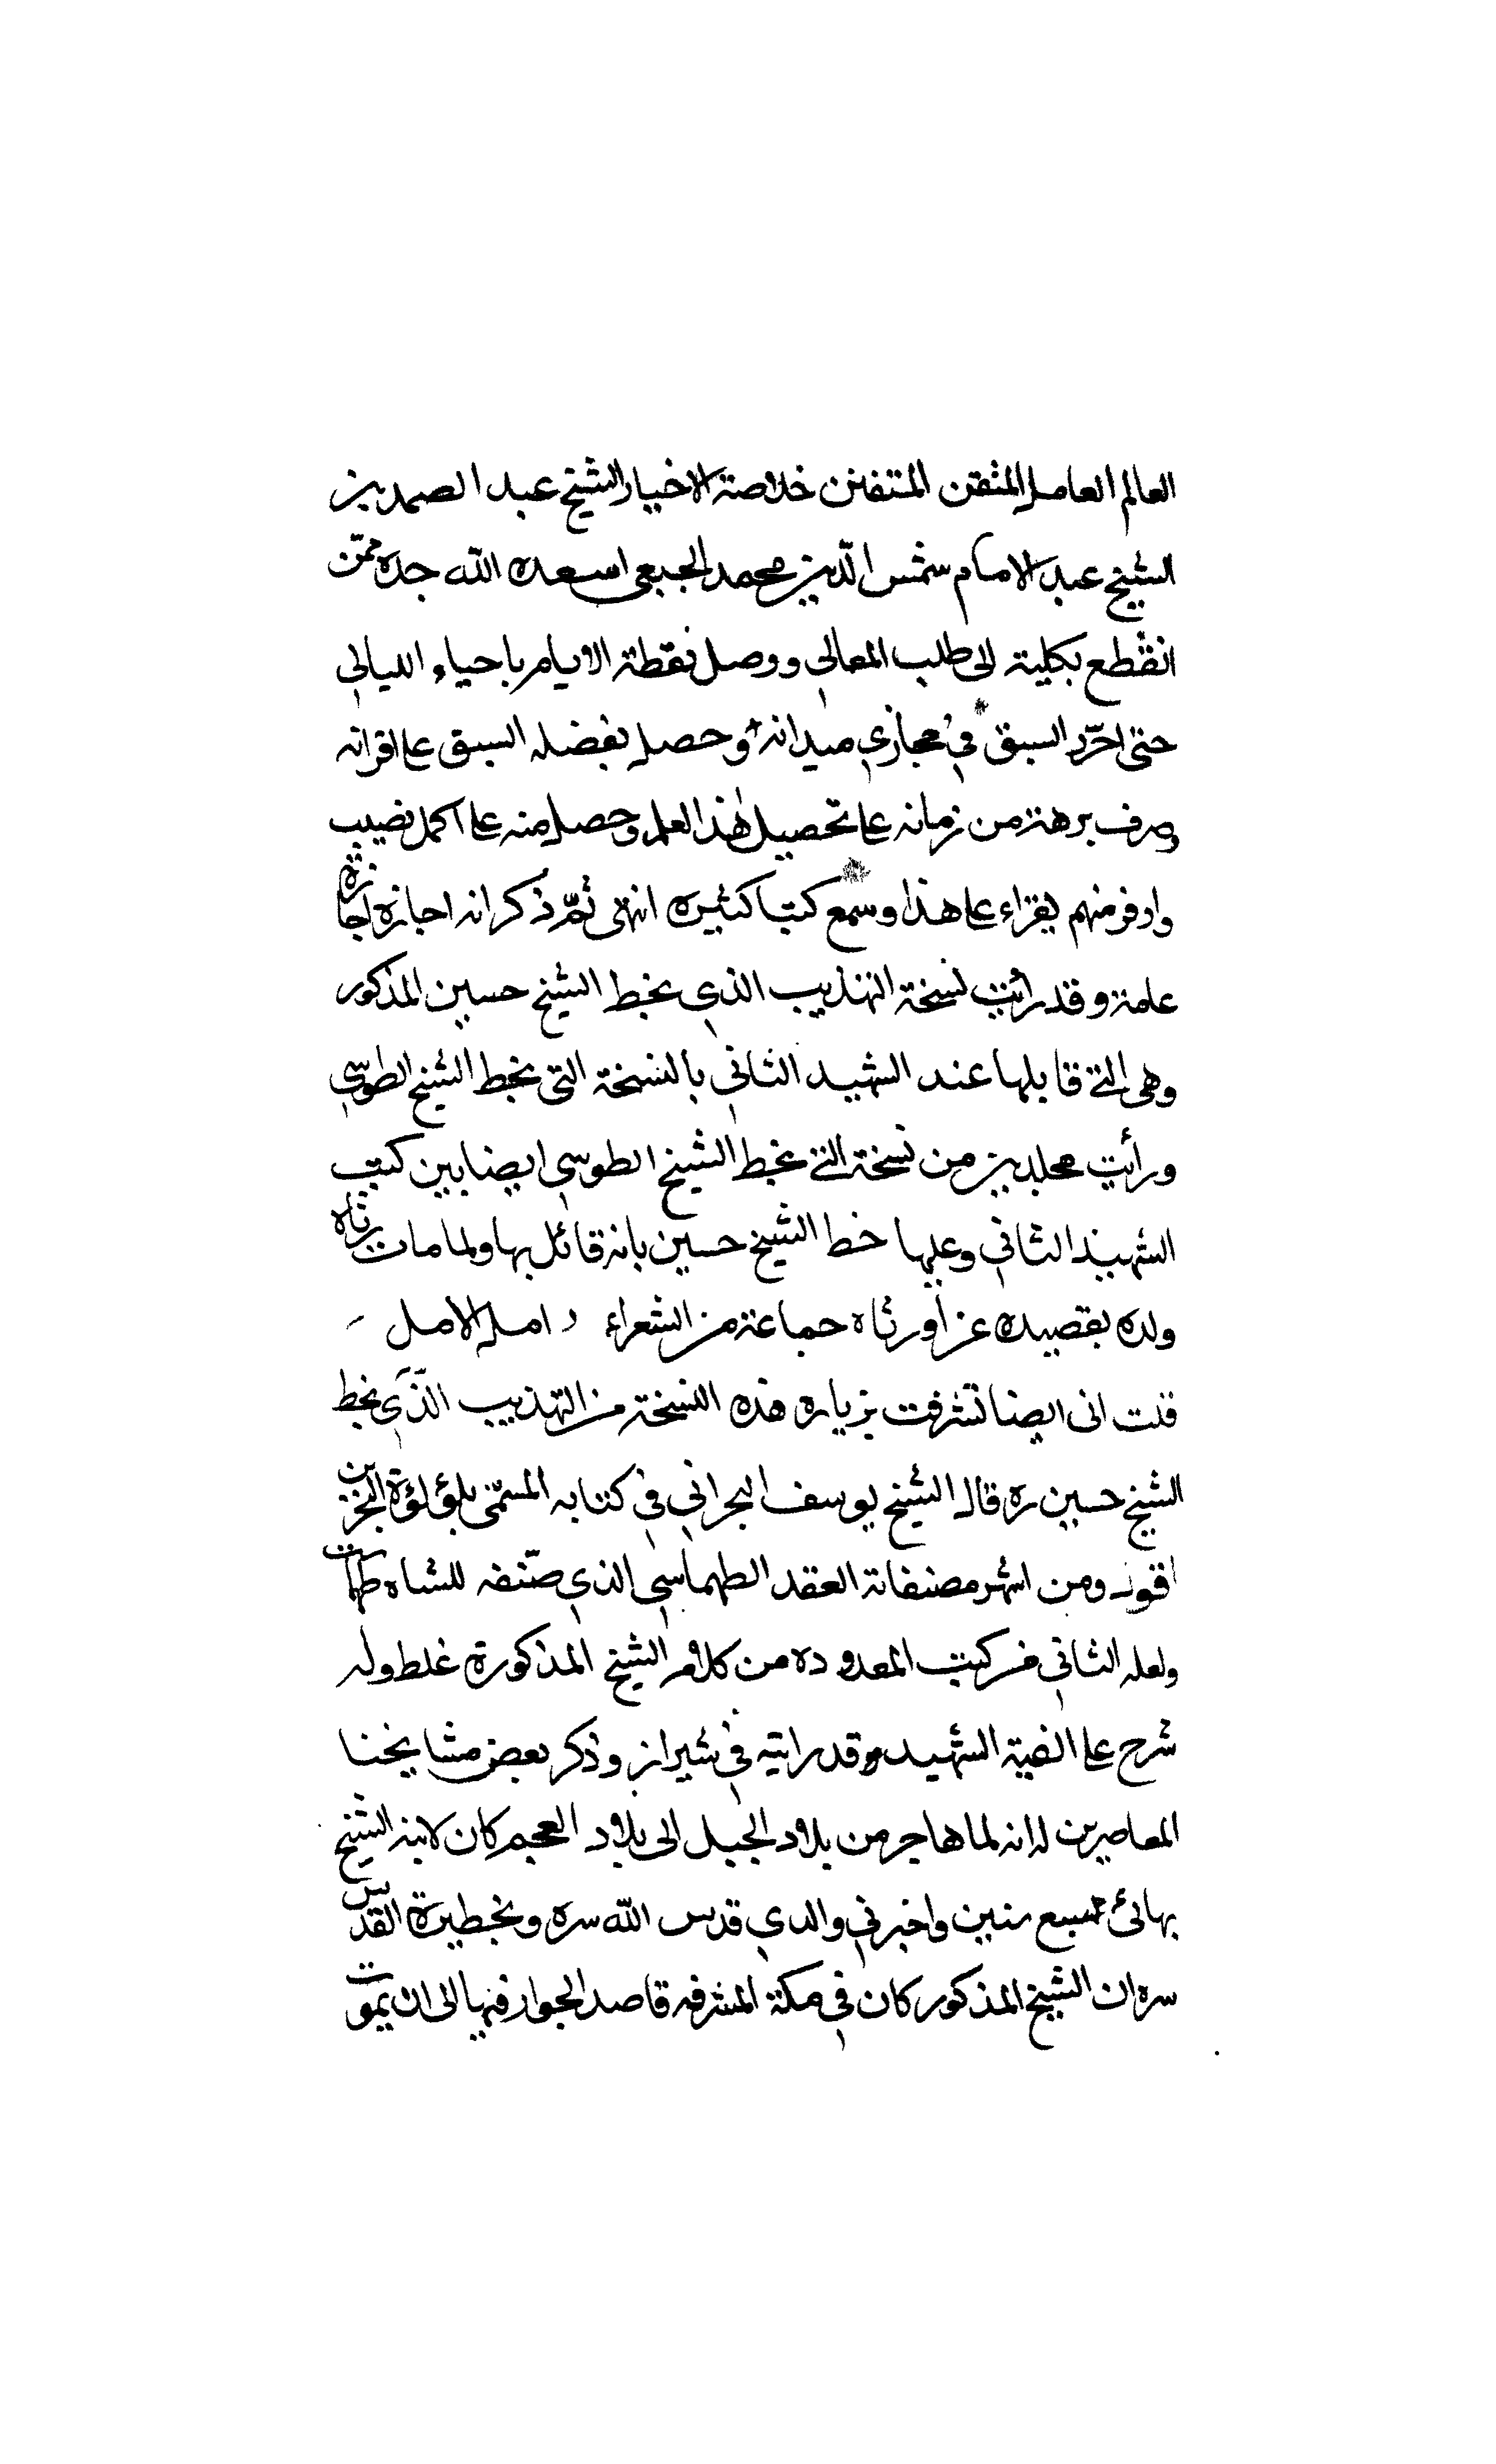 العالم العامل المتقن المتفنن خلاصة الاخيار الشيخ عبد الصمد بن
الشيخ عبد الامام شمس الدين محمد الجبعي اسعده الله جده ممّن
انقطع بكلية الى طلب المعالي ووصل نقطة الايام باحياء الليالي
حتى احرّد السبق في مجازي ميدانه وحصل بفضله السبق على اقرانه
وصرف برهة من زمانه على تحصيل هذا العلم وحصل منه على اكمل نصيب
واوفر منهم بقراء على هذا وسمع كتبا كثيره انتهى ثمّ ذكر انه اجازه اجازة
عامة وقد رأيت نسخة التهذيب الذي بخط الشيخ حسين المذكور
وهى التى قابلها عند الشهيد الثاني بالنسخة التى بخط الشيخ الطوسي
ورأيت مجلدين من نسخة التى بخط الشيخ الطوسي ايضا بين كتب
الشهيد الثاني وعليها خط الشيخ حسين بانه قائل بها ولما مات رثاه
ولده بقصيده عزا ورثاه جماعة من الشعراء امل الامل
قلت انى ايضا تشرفت بزياره هذه النسخة من التهذيب الّذي بخط
الشيخ حسين ره قال الشيخ يوسف البحراني في كتابه المسمّى بلؤلؤة البحرين
اقول ومن اشهر مصنفاته العقد الطهماسي الذي صنّفه للشاه طهماست
ولعله الثاني من كتب المعدوده من كلام الشيخ المذكورة غلط وله
شرح على الفية الشهيد وقد رايته في شيراز وذكر بعض مشايخنا
المعاصرين له انه لما هاجر من بلاد الجبل الى بلاد العجم كان لابنه الشيخ
بهائى سبع سنين واخبرني والدي قدس الله سره وبخطيرة القدس
سره ان الشيخ المذكور كان في مكة المشرفه قاصد الجوار فيها الى ان يموت